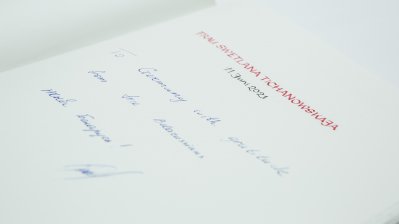 FRAU SWETLANA TICHANOWSKAJA
11. Juni 2021
To Germany with gratitude
from the Belarusians
Жыве Беларусь!